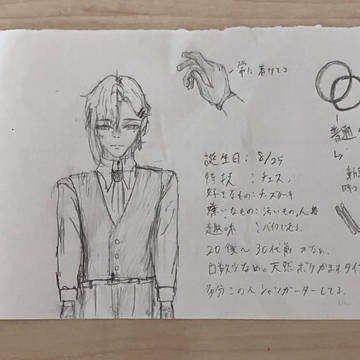 常に着けてる
普通
誕生日：8/25
特技：チェス
好きなもの：チーズケーキ
嫌いなもの：汚いもの,人混
趣味：バイク
20後〜30代前 かなぁ
口数少なめ。天然ボケかます
多分この人シャツガーターしてる。